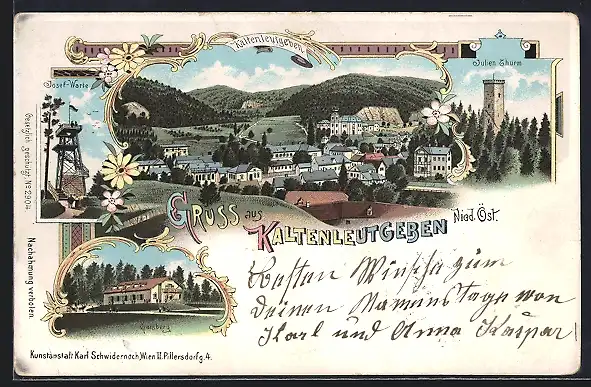 Kaltenleutgeben
Josef-Warte
Julien Thurm
Gesetzlich geschützt No 2904
Nachahmung verboten.
GRUSS aus
KALTENLEUTGEBEN Nied. Öst.
Besten Wünsche zum
deinen Namenstage von
Karl und Anna Kaspar!
Kunstanstalt Karl Schwidernoch, Wien II. Pillersdorfg. 4.